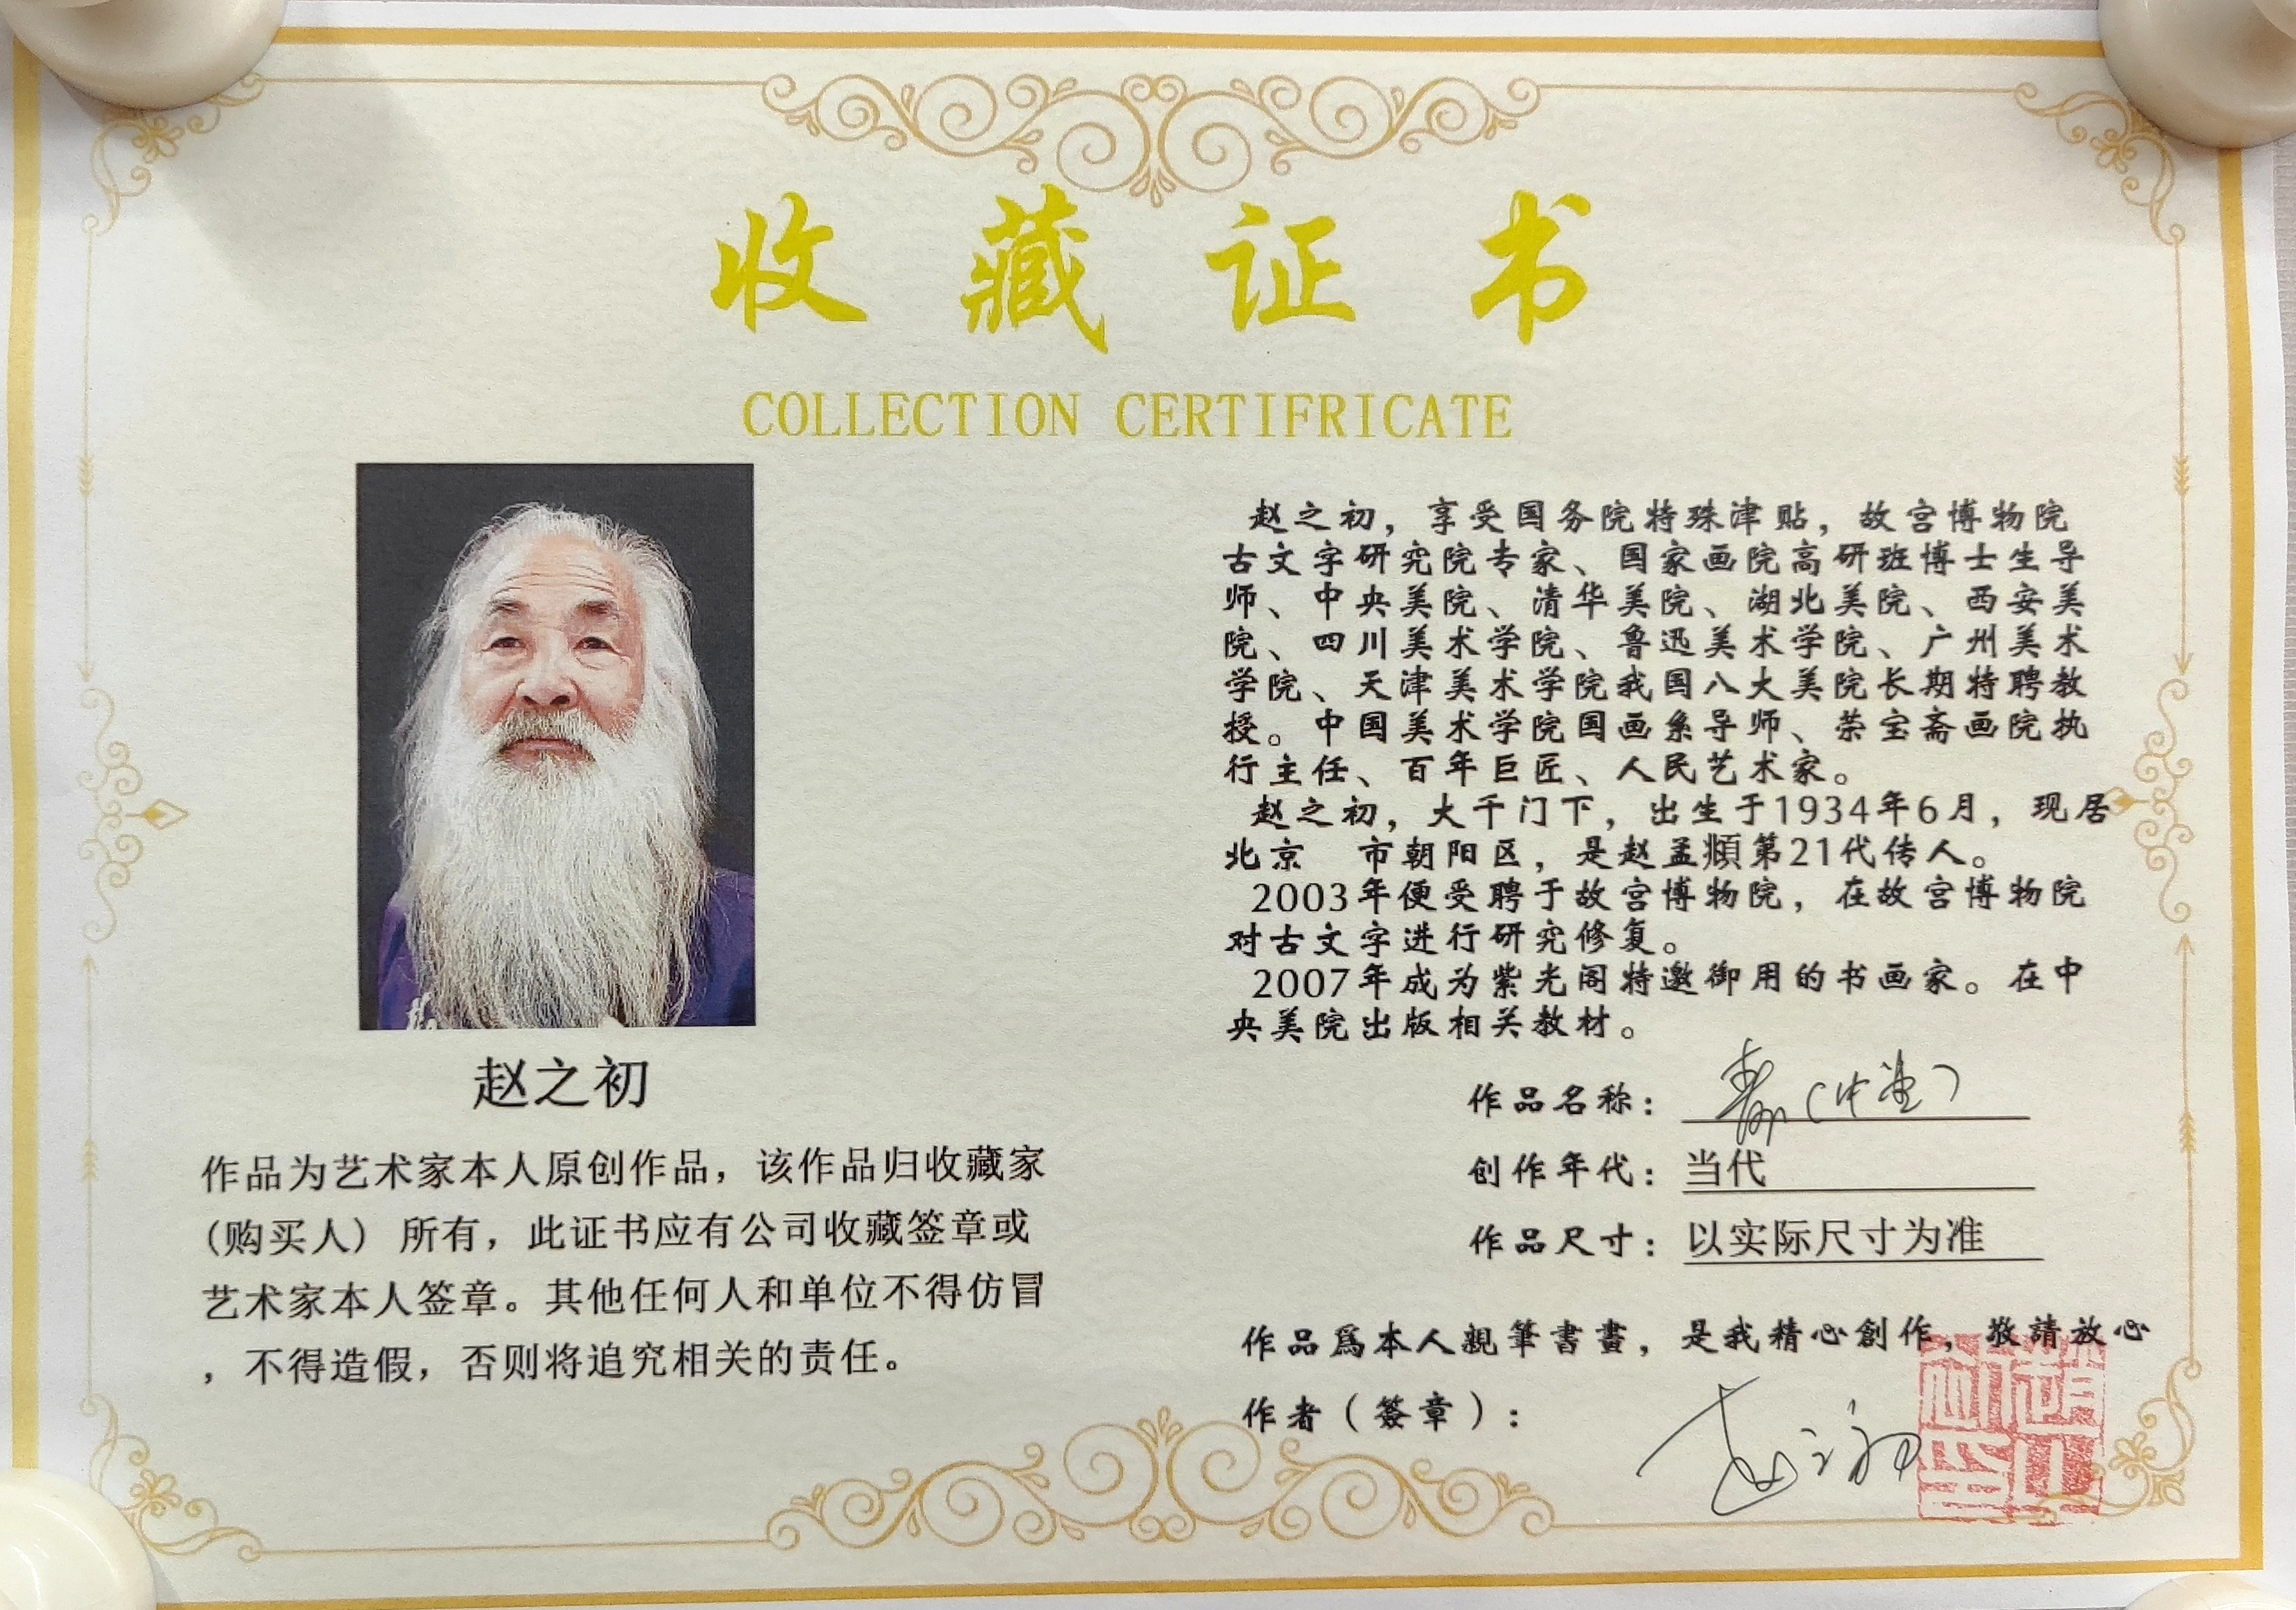 收藏证书
COLLECTION CERTIFRICATE
赵之初
作品为艺术家本人原创作品，该作品归收藏家
(购买人) 所有，此证书应有公司收藏签章或
艺术家本人签章。其他任何人和单位不得仿冒
，不得造假，否则将追究相关的责任。
赵之初，享受国务院特殊津贴，故宫博物院
古文字研究院专家、国家画院高研班博士生导
师、中央美院、清华美院、湖北美院、西安美
院、四川美术学院、鲁迅美术学院、广州美术
学院、天津美术学院我国八大美院长期特聘教
授。中国美术学院国画系导师、荣宝斋画院执
行主任、百年巨匠、人民艺术家。
赵之初，大千门下，出生于1934年6月，现居
北京 市朝阳区，是赵孟頫第21代传人。
2003年便受聘于故宫博物院，在故宫博物院
对古文字进行研究修复。
2007年成为紫光阁特邀御用的书画家。在中
央美院出版相关教材。
作品名称：（中堂）
创作年代：当代
作品尺寸：以实际尺寸为准
作品爲本人親筆書畫，是我精心創作，敬請放心
作者（簽章）：
赵之初